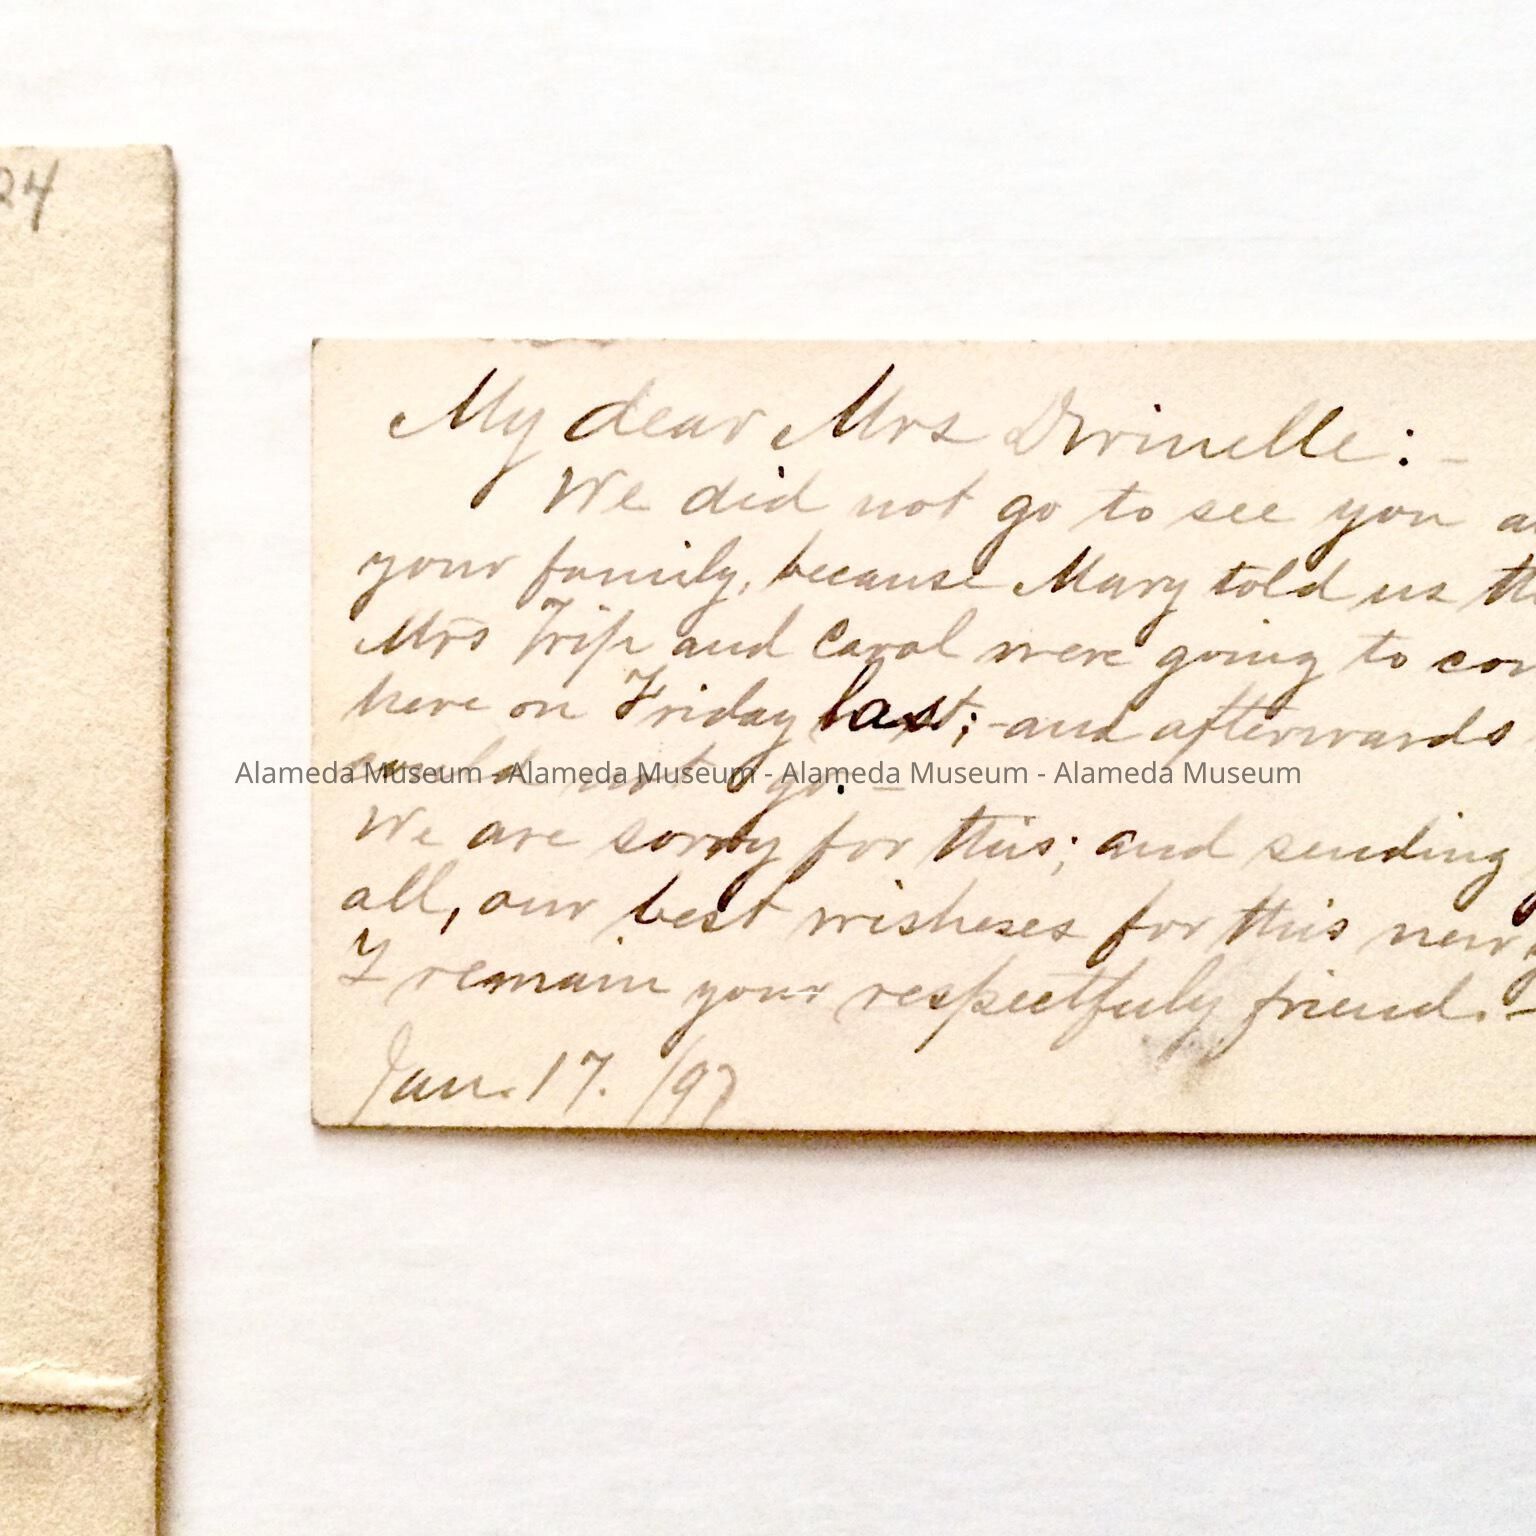 24
My dear Mrs Dwinelle:-
We did not go to see you
your family, because Mary told us
Mrs Trip and Carol were going to
here on Friday last;-and afterwards
could not go.-
Alameda Museum - Alameda Museum - Alameda Museum - Alameda Museum
We are sorry for this; and sending
all, our best wisheses for this new
I remain your respectfuly friend.-
Jan. 17. /97